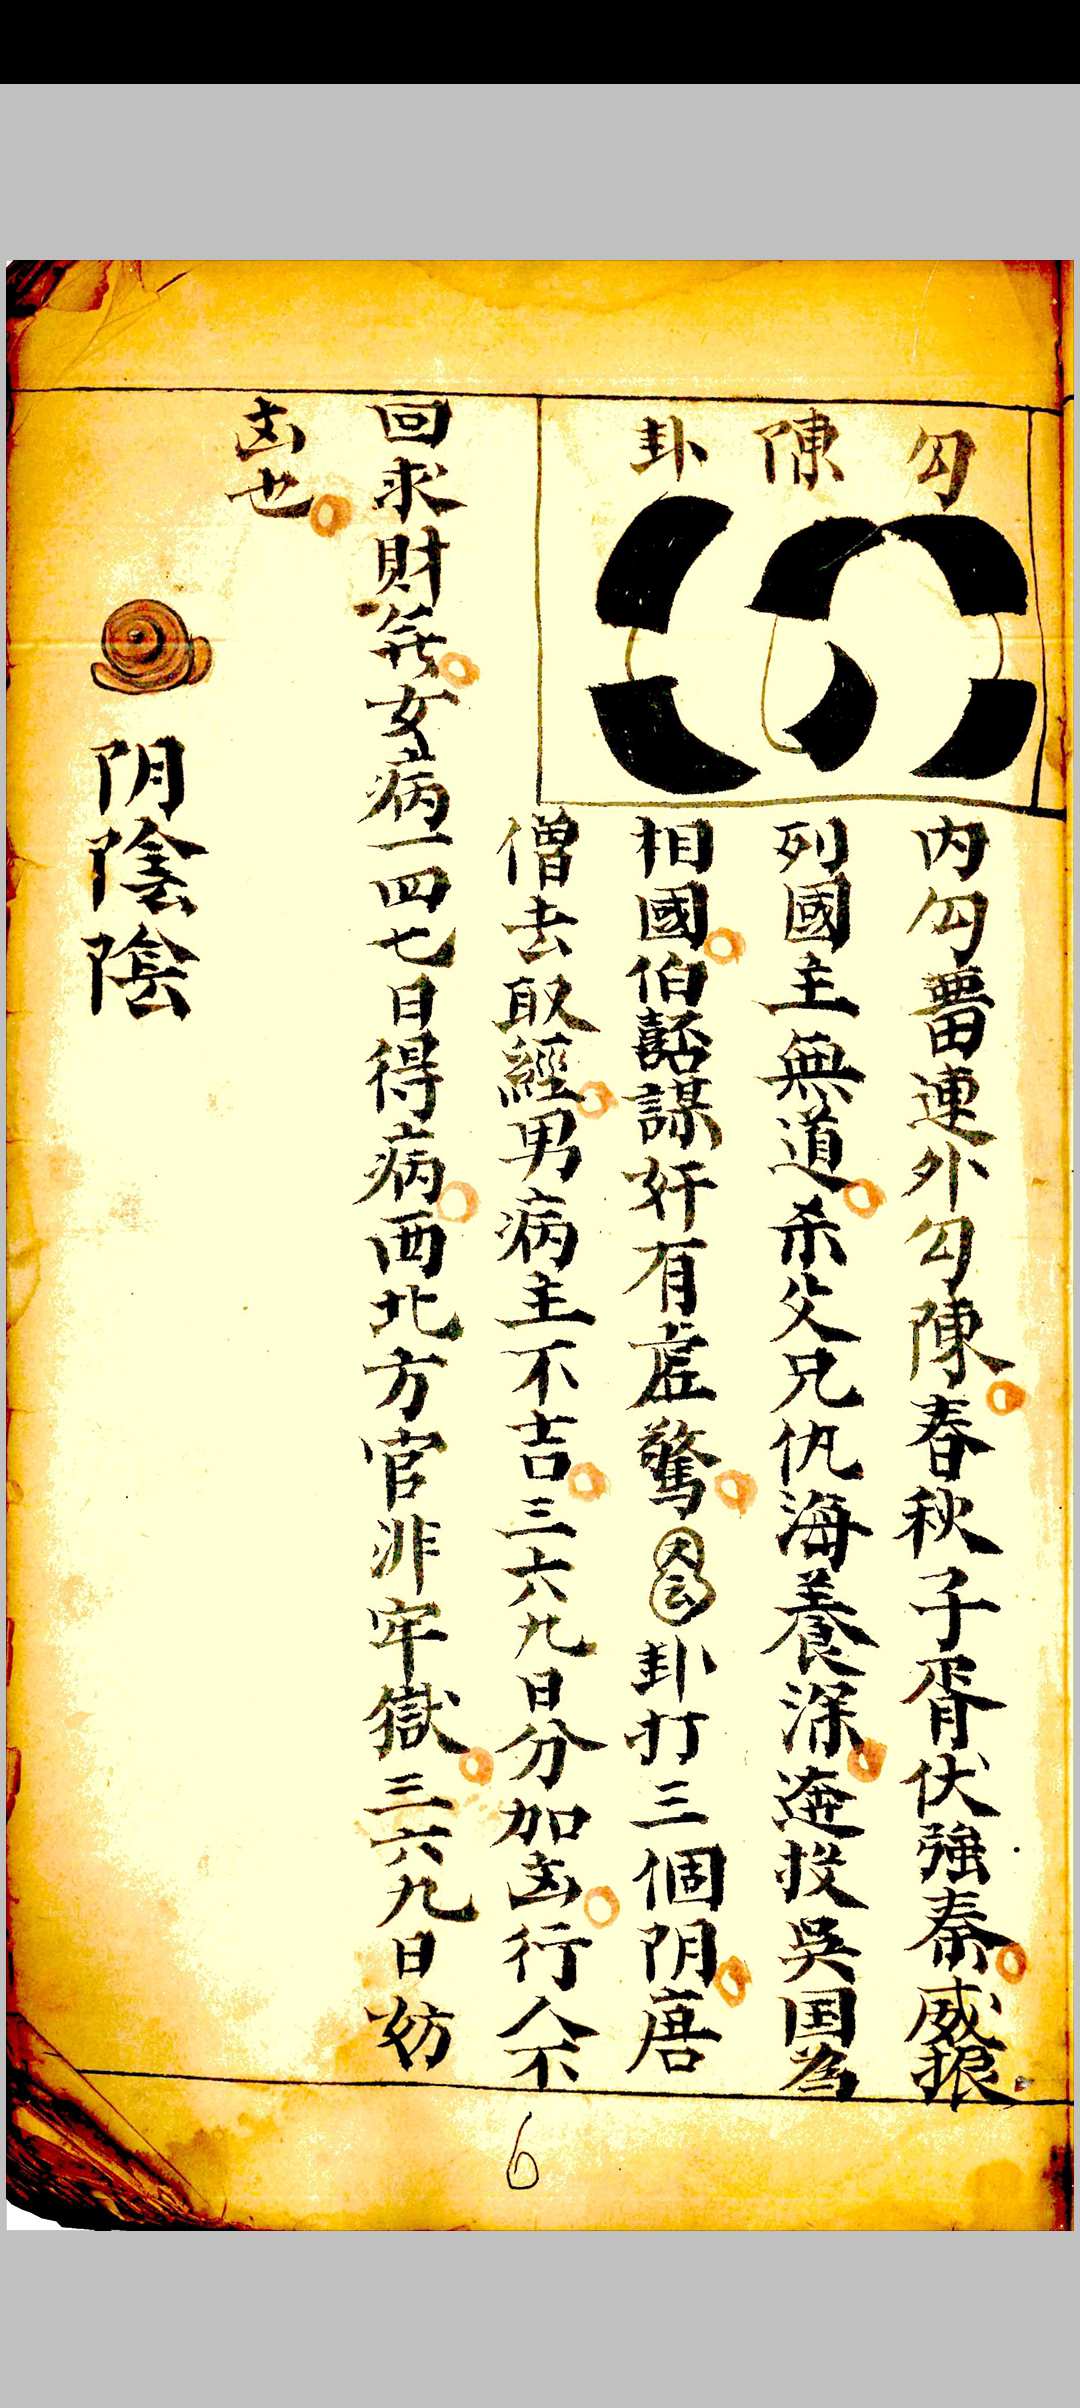 勾陳卦
内勾當連外勾陳春秋子胥伏強秦威振
列國主無道杀父兄仇海養深逩投吳国為
相國伯嚭謀奸有虚驚又云卦打三個阴唐
僧去取經男病主不吉三六九日分加凶行人不
回求財無女病一四七日得病西北方官非牢獄三六九日妨
凶也
阴陰陰
6